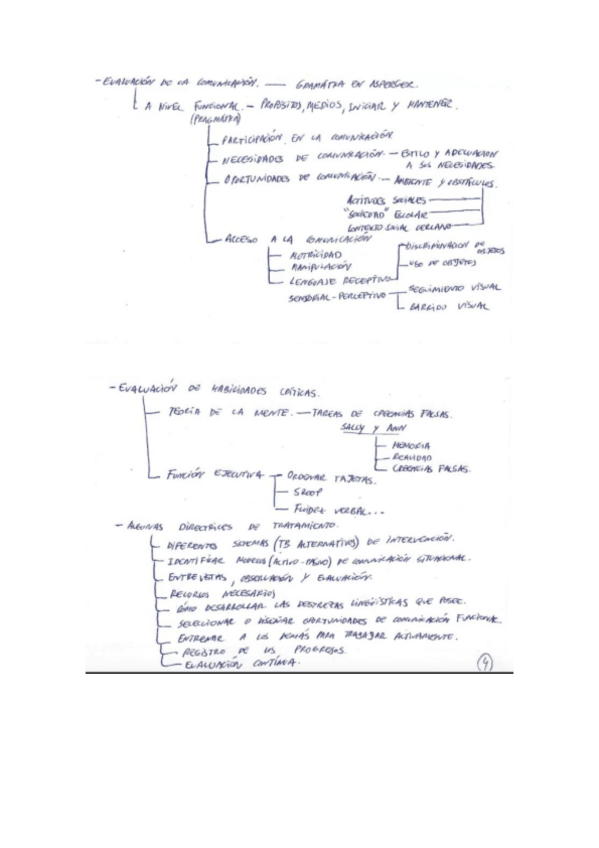 - EVALUACIÓN DE LA COMUNICACIÓN. — GRAMÁTICA EN ASPERGER.
A NIVEL FUNCIONAL. - PROPÓSITOS, MEDIOS, INICIAR Y MANTENER.
(PRAGMÁTICA)
PARTICIPACIÓN EN LA COMUNICACIÓN
NECESIDADES DE COMUNICACIÓN. - ESTILO Y ADECUACION
A SUS NECESIDADES.
OPORTUNIDADES DE COMUNICACIÓN. - AMBIENTE Y OBSTÁCULOS.
ACTITUDES SOCIALES
"SOCIEDAD" ESCOLAR
CONTEXTO SOCIAL CERCANO
ACCESO A LA COMUNICACIÓN
MOTRICIDAD
DISCRIMINACION DE OBJETOS
MANIPULACIÓN
USO DE OBJETOS
LENGUAJE RECEPTIVO
SENSORIAL-PERCEPTIVO
SEGUIMIENTO VISUAL
BARRIDO VISUAL
- EVALUACIÓN DE HABILIDADES CRÍTICAS.
TEORÍA DE LA MENTE. — TAREAS DE CREENCIAS FALSAS.
SALLY Y ANN
MEMORIA
REALIDAD
CREENCIAS FALSAS.
FUNCIÓN EJECUTIVA — ORDENAR TAJETAS.
SROOP
FLUIDEZ VERBAL...
- ALGUNAS DIRECTRICES DE TRATAMIENTO.
DIFERENTES SISTEMAS (TB ALTERNATIVOS) DE INTERVENCIÓN.
IDENTIFICAR MODELOS (ACTIVO-PASIVO) DE COMUNICACIÓN SITUACIONAL.
ENTREVISTAS, OBSERVACIÓN Y EVALUACIÓN.
RECURSOS NECESARIOS
CÓMO DESARROLLAR LAS DESTREZAS LINGÜÍSTICAS QUE POSEE.
SELECCIONAR O DISEÑAR OPORTUNIDADES DE COMUNICACIÓN FUNCIONAL.
ENTRENAR A LOS DEMÁS PARA TRABAJAR ACTIVAMENTE.
REGISTRO DE LOS PROGRESOS.
EVALUACIÓN CONTÍNUA.
4